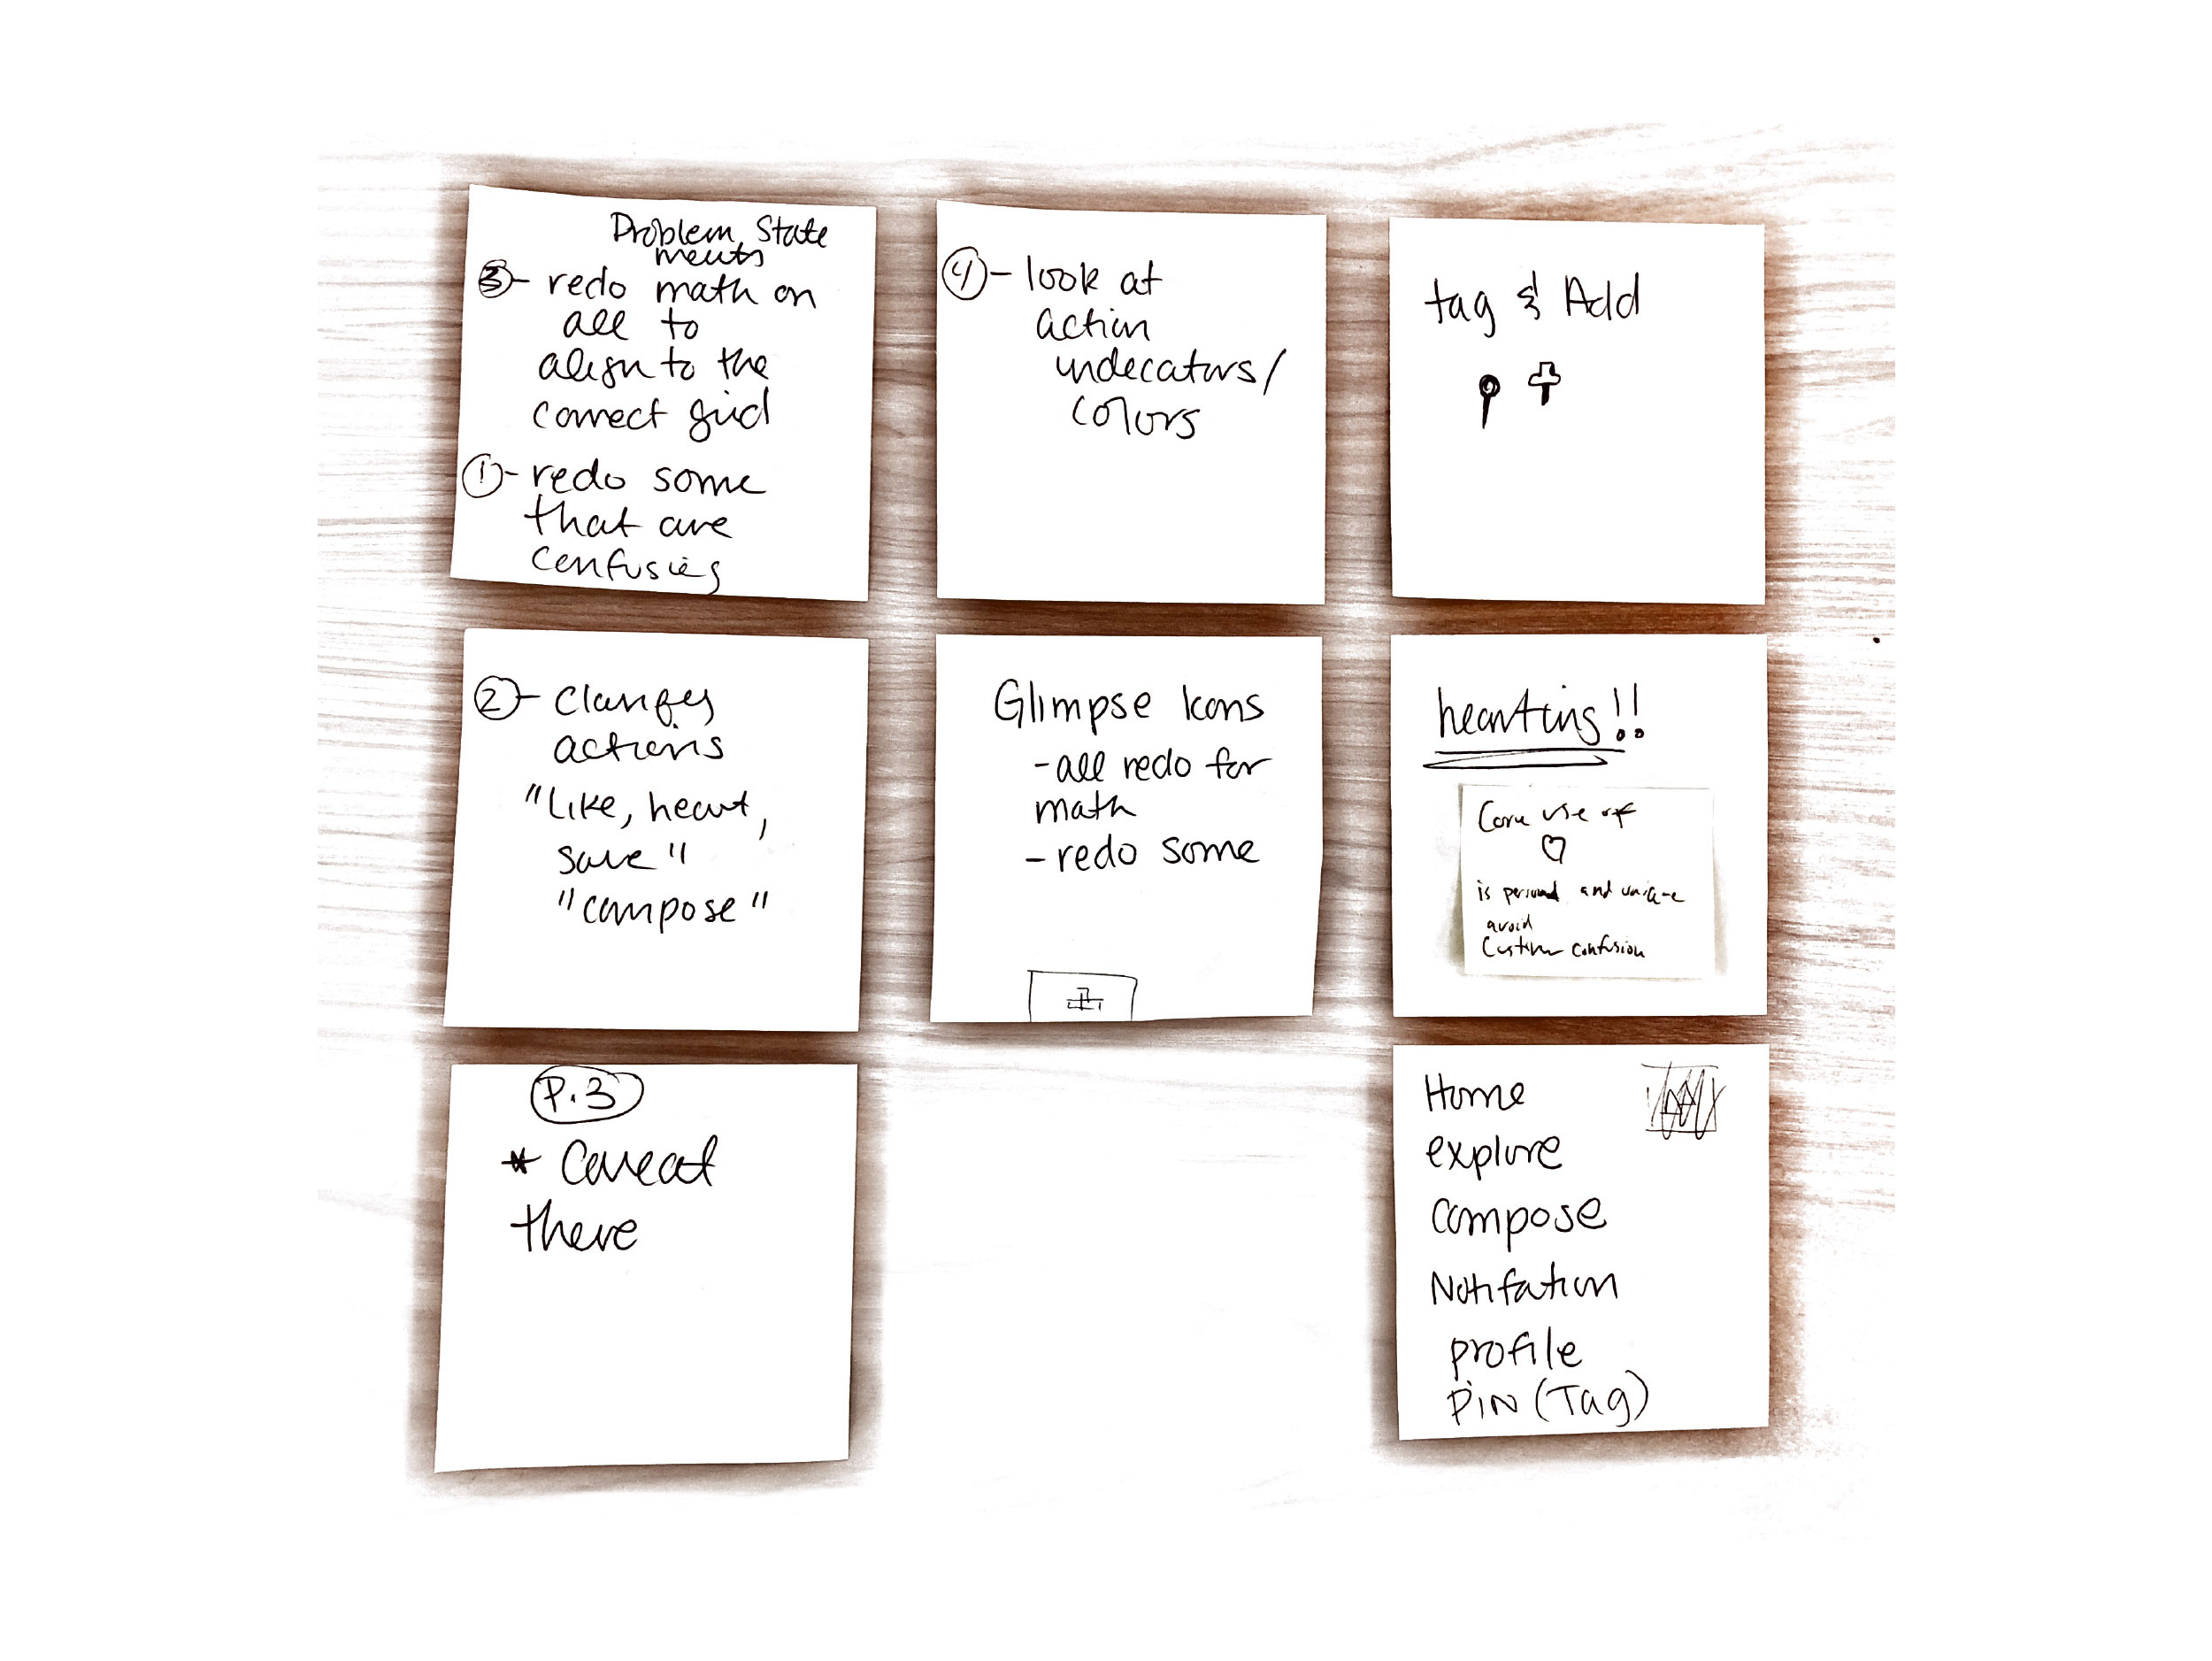 Problem State
ments
③- redo math on
all to
align to the
correct grid
①- redo some
that are
confusing
④- look at
action
indecators/
colors
tag & Add
②- Clarify
actions
"Like, heart,
save"
"compose"
Glimpse Icons
-all redo for
math
-redo some
hearting!!
Core use of
♡
is personal and unique
avoid
Custom confusion
P.3
* Caveat
there
Home
explore
Compose
Notifation
profile
PiN (Tag)